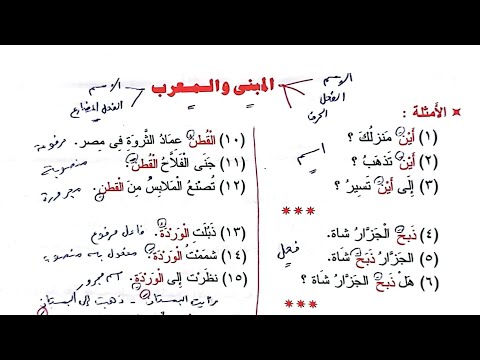 المبنى والمعرب
الاسم
الفعل
الحرف
الاسم
الفعل المضارع
الأمثلة :
(١) أَيْنَ مَنزِلُكَ ؟
(٢) أَيْنَ تَذهَبُ ؟
(٣) إِلَى أَيْنَ تَسِيرُ ؟
اسم
***
(٤) ذَبَحَ الْجَزَّارُ شاة.
(٥) الجَزَّارُ ذَبَحَ شَاة.
(٦) هَلْ ذَبَحَ الْجَزَّارُ شَاة ؟
فعل
***
(١٠) الْقُطنُ عِمَادُ الثَّروَةِ فِى مِصر. مرفوعة
(١١) جَنَى الْفَلَّاحُ الْقُطنَ. منصوبة
(١٢) تُصنَعُ الْمَلَابِسُ مِنَ الْقطنِ. مجرورة
(١٣) ذَبُلَتِ الْوَردَةُ. فاعل مرفوع
(١٤) شمَمتُ الْوَردَةَ. مفعول به منصوبة
(١٥) نظَرْتُ إلى الْوَردَةِ. اسم مجرور
رأيت البستانَ - ذهبت إلى البستانِ